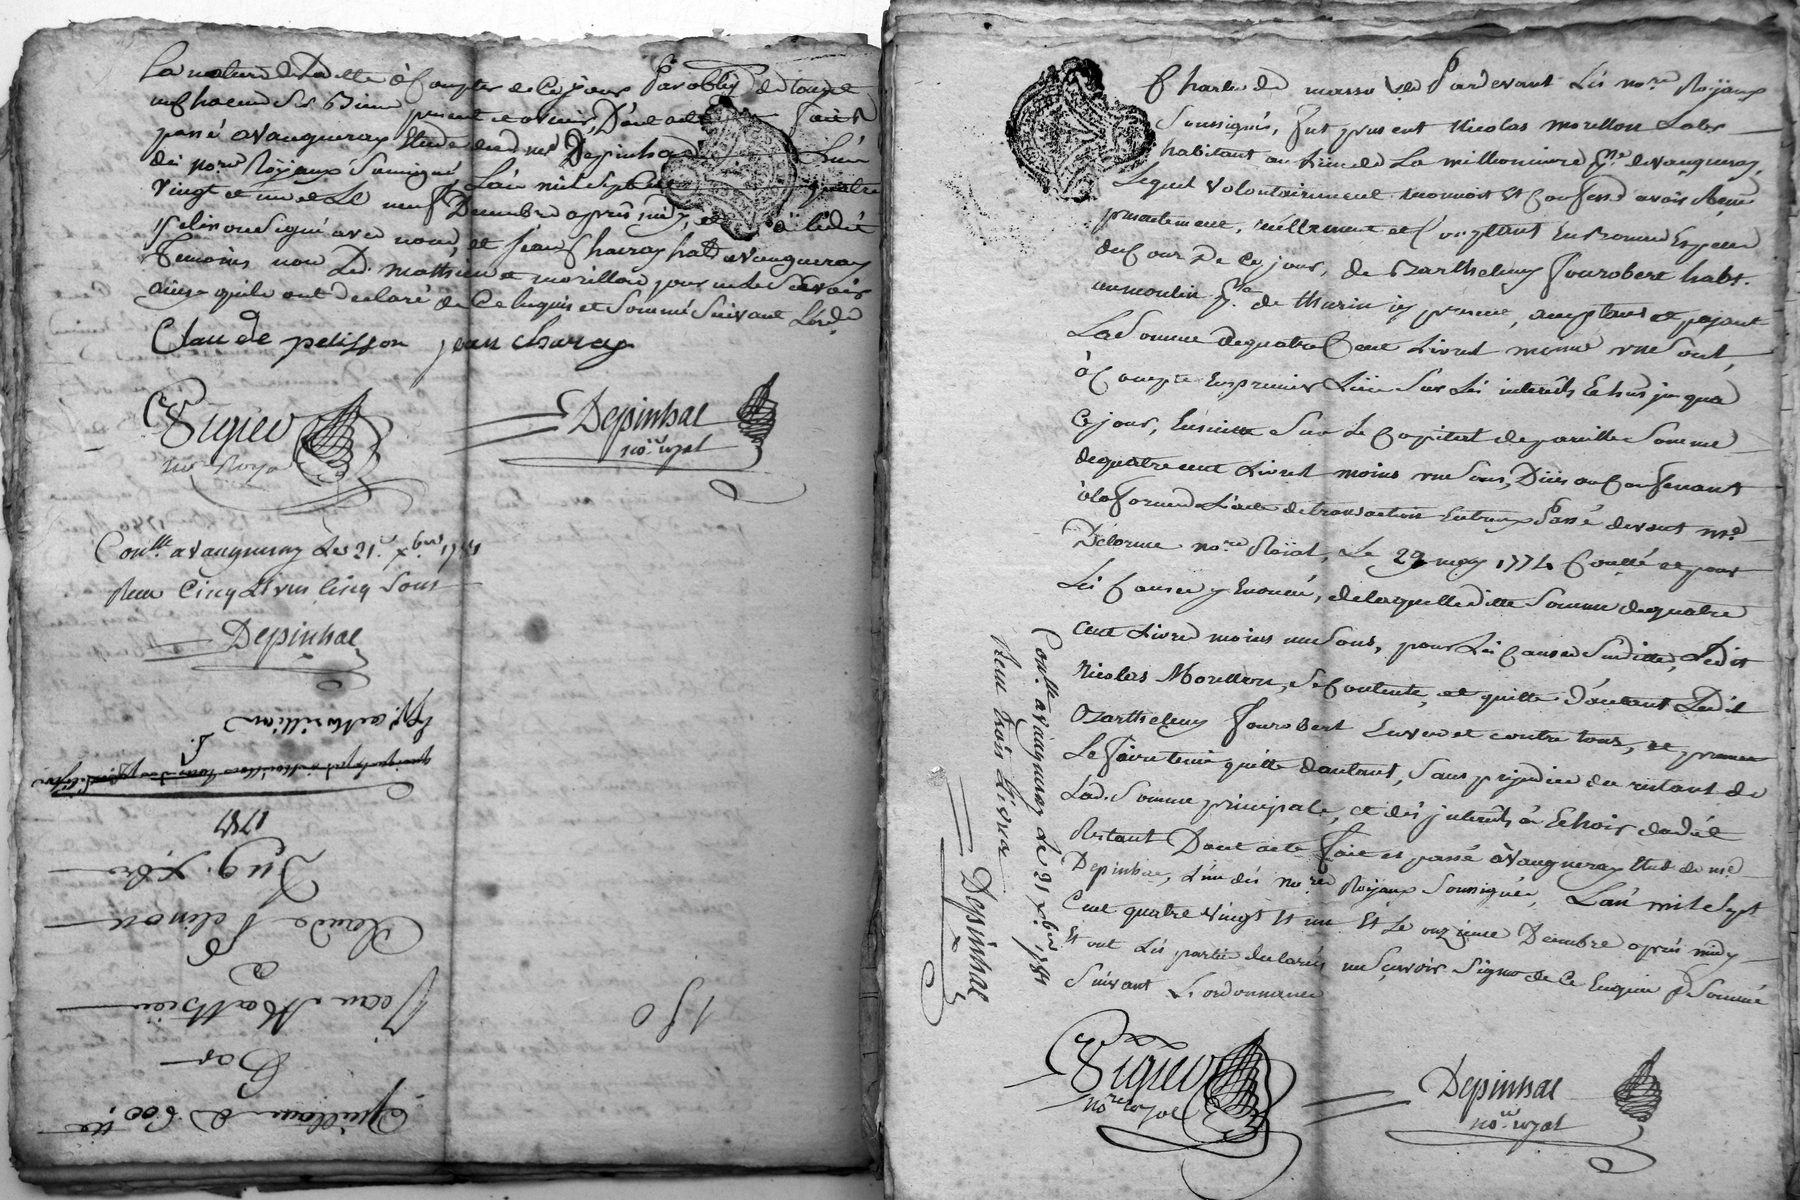 La nature de La dette à Compter de Ce jour Par obbligé de tous et
un chacun Ses Biens present et avenir, Dont acte fait et
passé a Vaugneray Etude dud. me Depinhac L'un
des nores. Royaux Soussigné, L'an mil Sept Cent quatre
vingt et un et Le neuf Decembre après midy, et a ledit
pelisson Signé avec nous, et jean Charay habt. a Vaugneray
temoins non Led. Mathieu et morillon pour ne le Sçavoir
ainsi qu'ils ont declaré de Ce Enquis et Sommé Suivant L'ord.
Claude pelisson jean charay
Vigier
nore Royal
Depinhac
nore. royal
Conllé a Vaugneray Le 21e. xbre 1781
Reçu Cinq Livres Cinq Sous
Depinhac
et morillion
1781
9 xbre
Claude Pelisson
a
Jean Mathieu
Par
Quittance de 600 tt
150
Charle de masso Par devant Les nores Royaux
Soussignés, fut present Nicolas Morellon Labr
habitant au Lieu de La milloniere psse de vaugneray,
Lequel volontairement reconnoit Et Confesse avoir Reçu
presentement, réellement et Comptant En Bonnes Especes
du Cour De Ce jour, de Barthelemy fourobert habt.
au moulin psse de thurin icy present, acceptant et payant
La Somme de quatre Cent Livres moins un Sous,
à Compte En premier Lieu Sur Les interêts Echus jusqua
Ce jour, Ensuitte Sur Le Capital de pareille Somme
de quatre cent Livres moins un Sous, Dües au Confessant
à la forme de L'acte de transaction Entreux Passé devant me
Delorme nore Royal, Le 29 may 1774 Conllé et pour
Les Causes y Enoncé, de laquelle ditte Somme de quatre
cent Livres moins un Sous, pour Les Causes Susdittes, Ledit
Nicolas Morellon, Se Contente, et quitte d'autant Ledit
Barthelemy fourobert Envers et contre tous, et promet
Le faire tenir quitte d'autant, Sans prejudice du restant de
Lad. Somme principale, et des jnterêts à Echoir dudit
Restant Dont acte fait et passé à Vaugneray Etude de me
Depinhac, L'un des nores Royaux Soussignés, L'an mil Sept
Cent quatre vingt Et un Et Le onzieme Decembre après midy
Et ont Les parties declarés ne Sçavoir Signer de Ce Enquis & Sommé
Suivant L'ordonnance
Vigier
nore royal
Depinhac
nore. royal
Conllé. a Vaugneray Le 21 xbre 1781
Reçu trois Livres
Depinhac